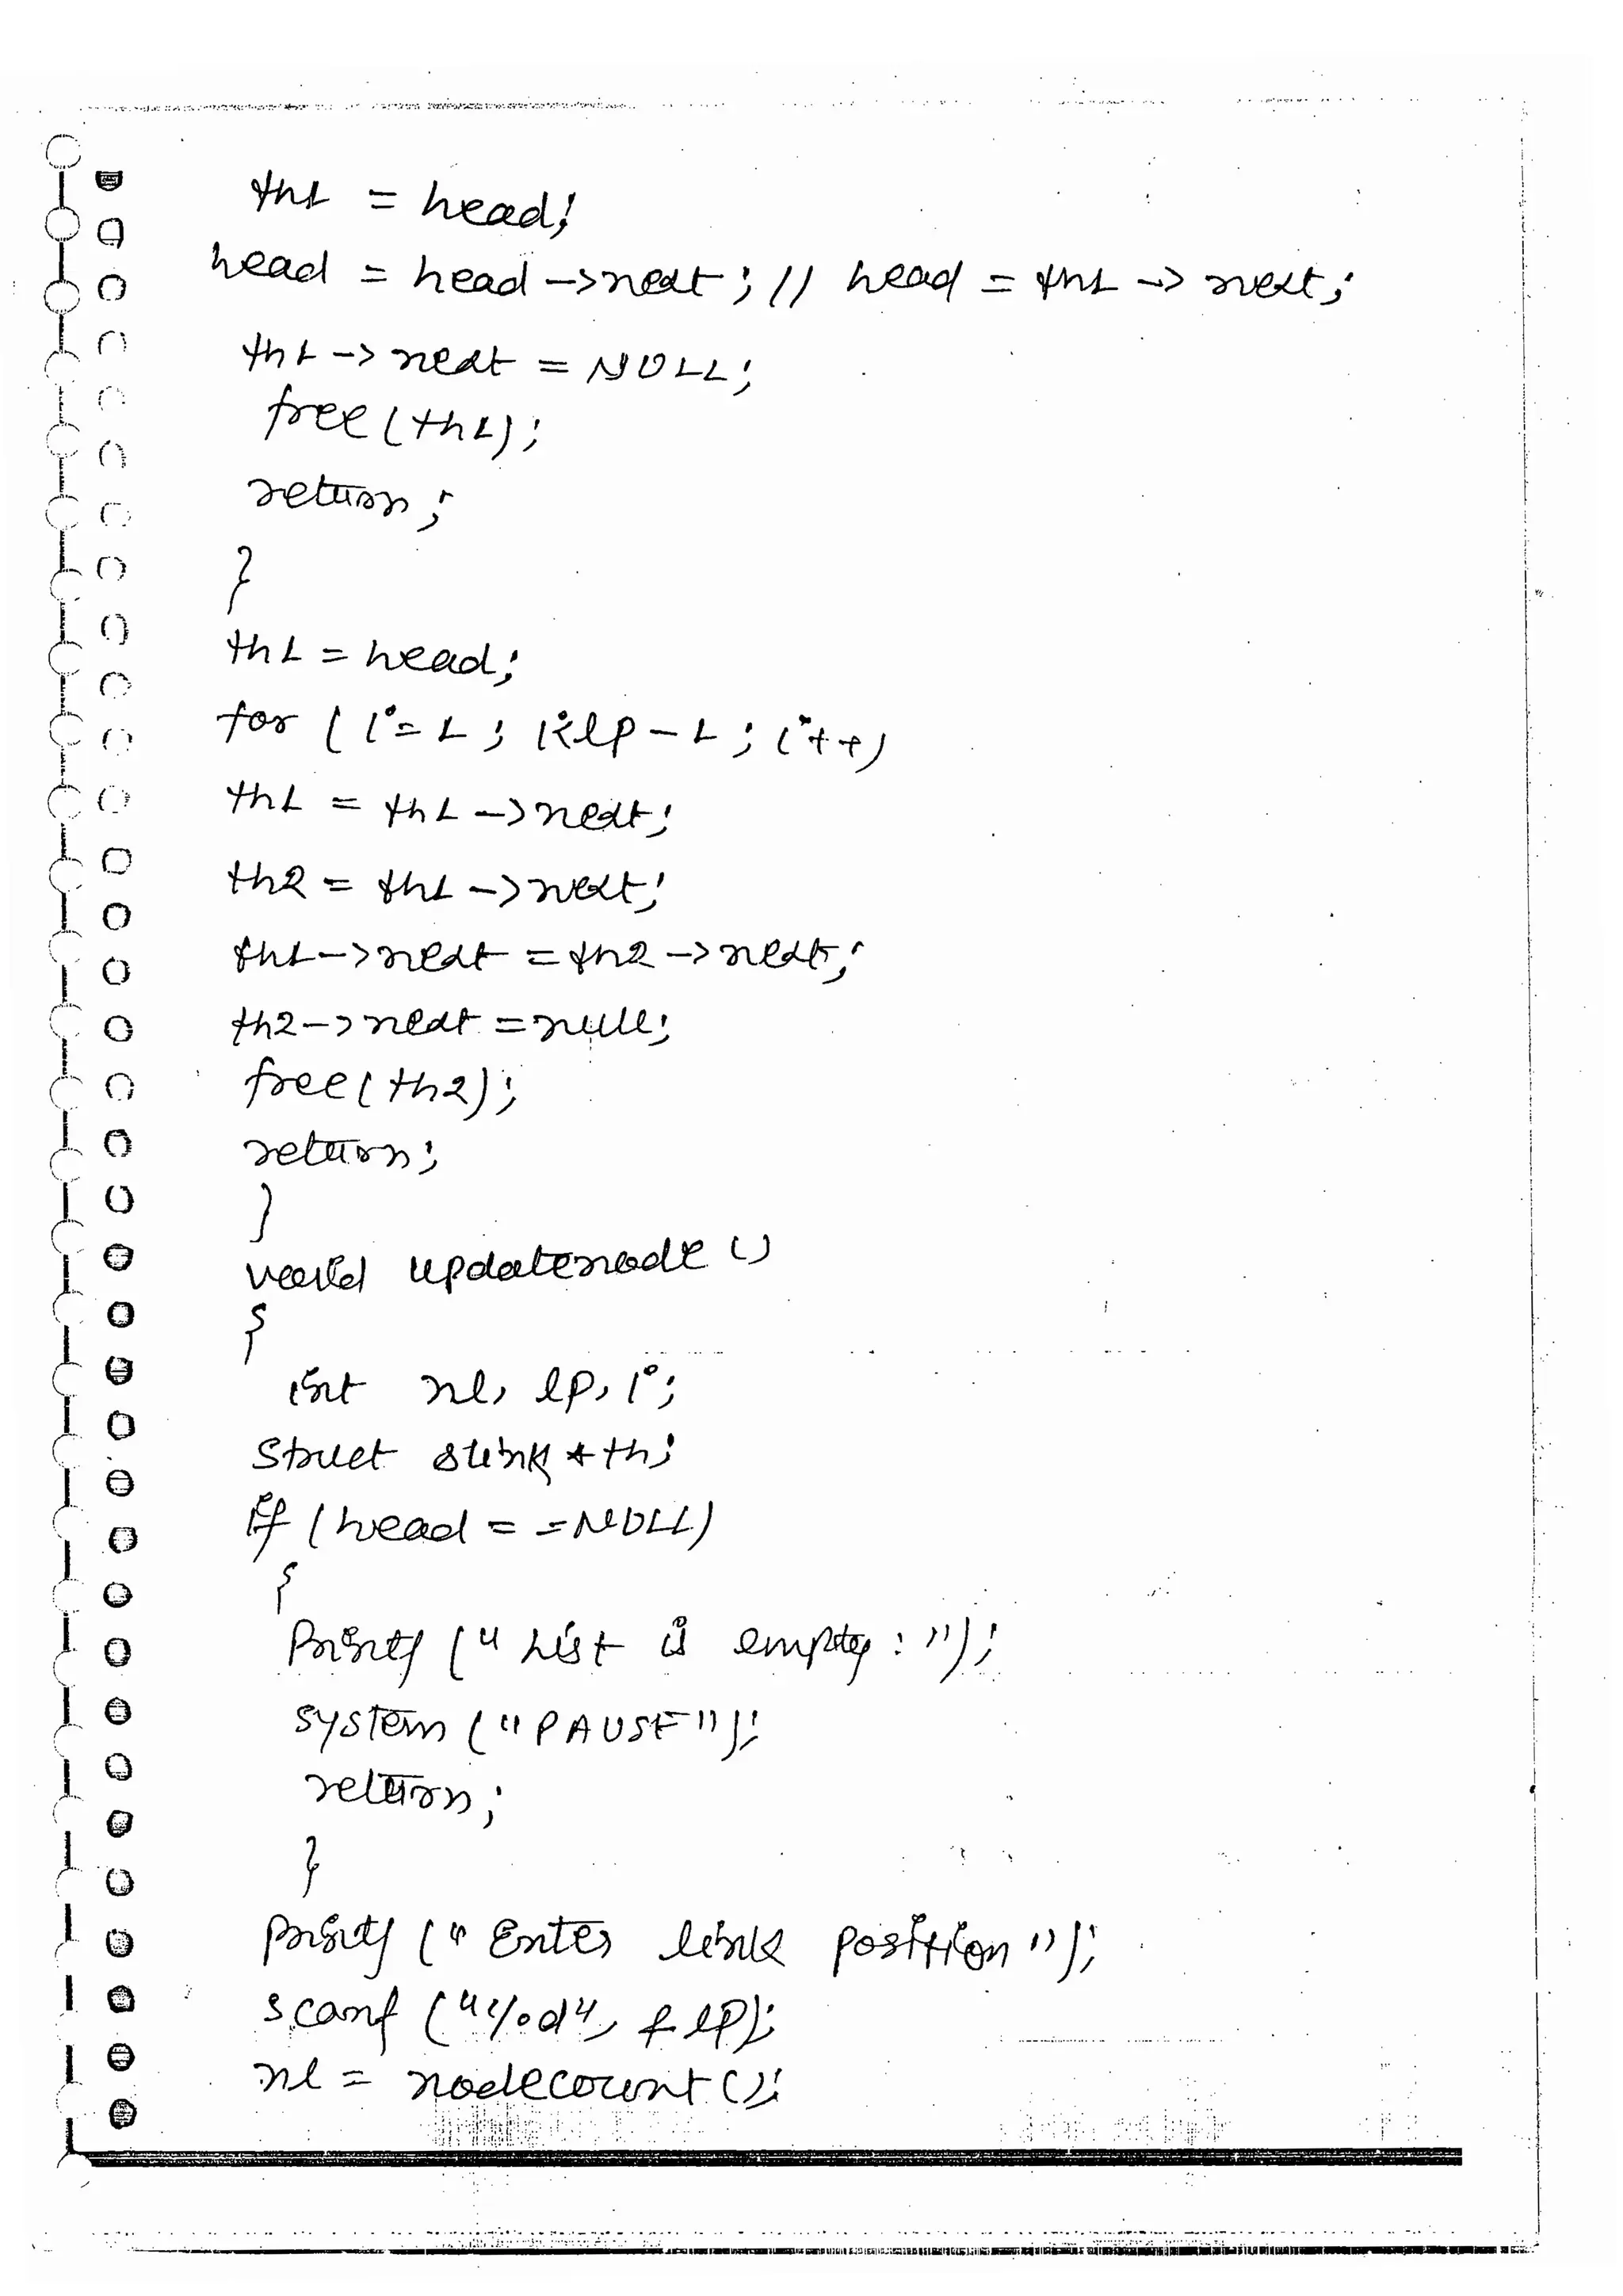 th1 = head;
head = head ->next; // head = th1 -> next;
th1 -> next = NULL;
free(th1);
return;
}
th1 = head;
for (i=1; i<lp-1; i++)
th1 = th1 ->next;
th2 = th1 ->next;
th1->next = th2 ->next;
th2->next = null;
free(th2);
return;
}
void updatenode ()
{
int nl, lp, i;
struct slink *th;
if (head = =NULL)
{
Printf (" List is empty : ");
system ("PAUSE");
return;
}
printf (" Enter link position ");
scanf ("%d", &lp);
nl = nodecount();